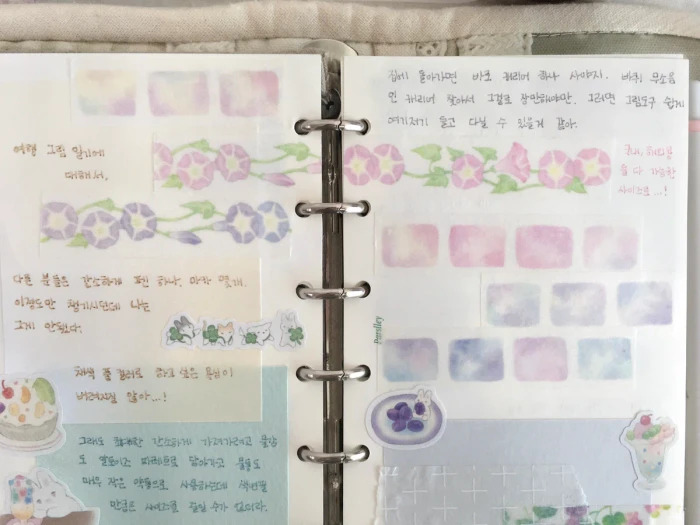 여행 그림 일기에
대해서,
다른 분들은 간소하게 펜 하나, 마카 몇개.
이정도만 챙기시던데 나는
그게 안된다.
채색 풀 컬러로 하고 싶은 욕심이
버려지질 않아...!
그래도 최대한 간소하게 가려가려고 물감
도 팔레트로 담아가고 물통도
매우 작은 사용하는데
만큼은 사이즈를 줄일 수가 없더라.
집에 돌아가면 바로 캐리어 하나 사야지. 바퀴 무소음
인 캐리어 찾아서 그걸로 장만해야만. 그러면 그림도구 쉽게
여기저기 들고 다닐 수 있을거 같아.
국내, 해외
다 가능한
사이즈로...!
Parsley